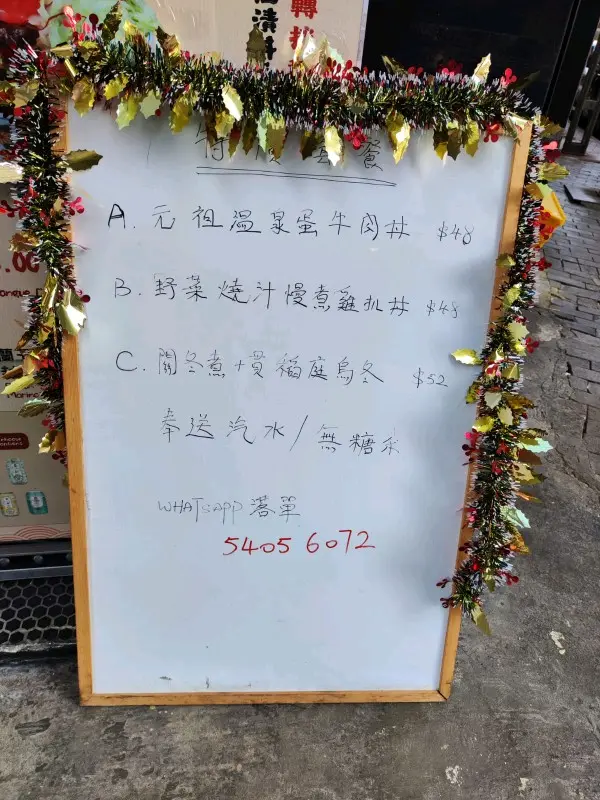 轉
漬
特
餐
A. 元祖溫泉蛋牛肉丼 $48
B. 野菜燒汁慢煮雞扒丼 $48
C. 關冬煮+貫稲庭烏冬 $52
奉送汽水/無糖茶
WHATSAPP 落單
5405 6072